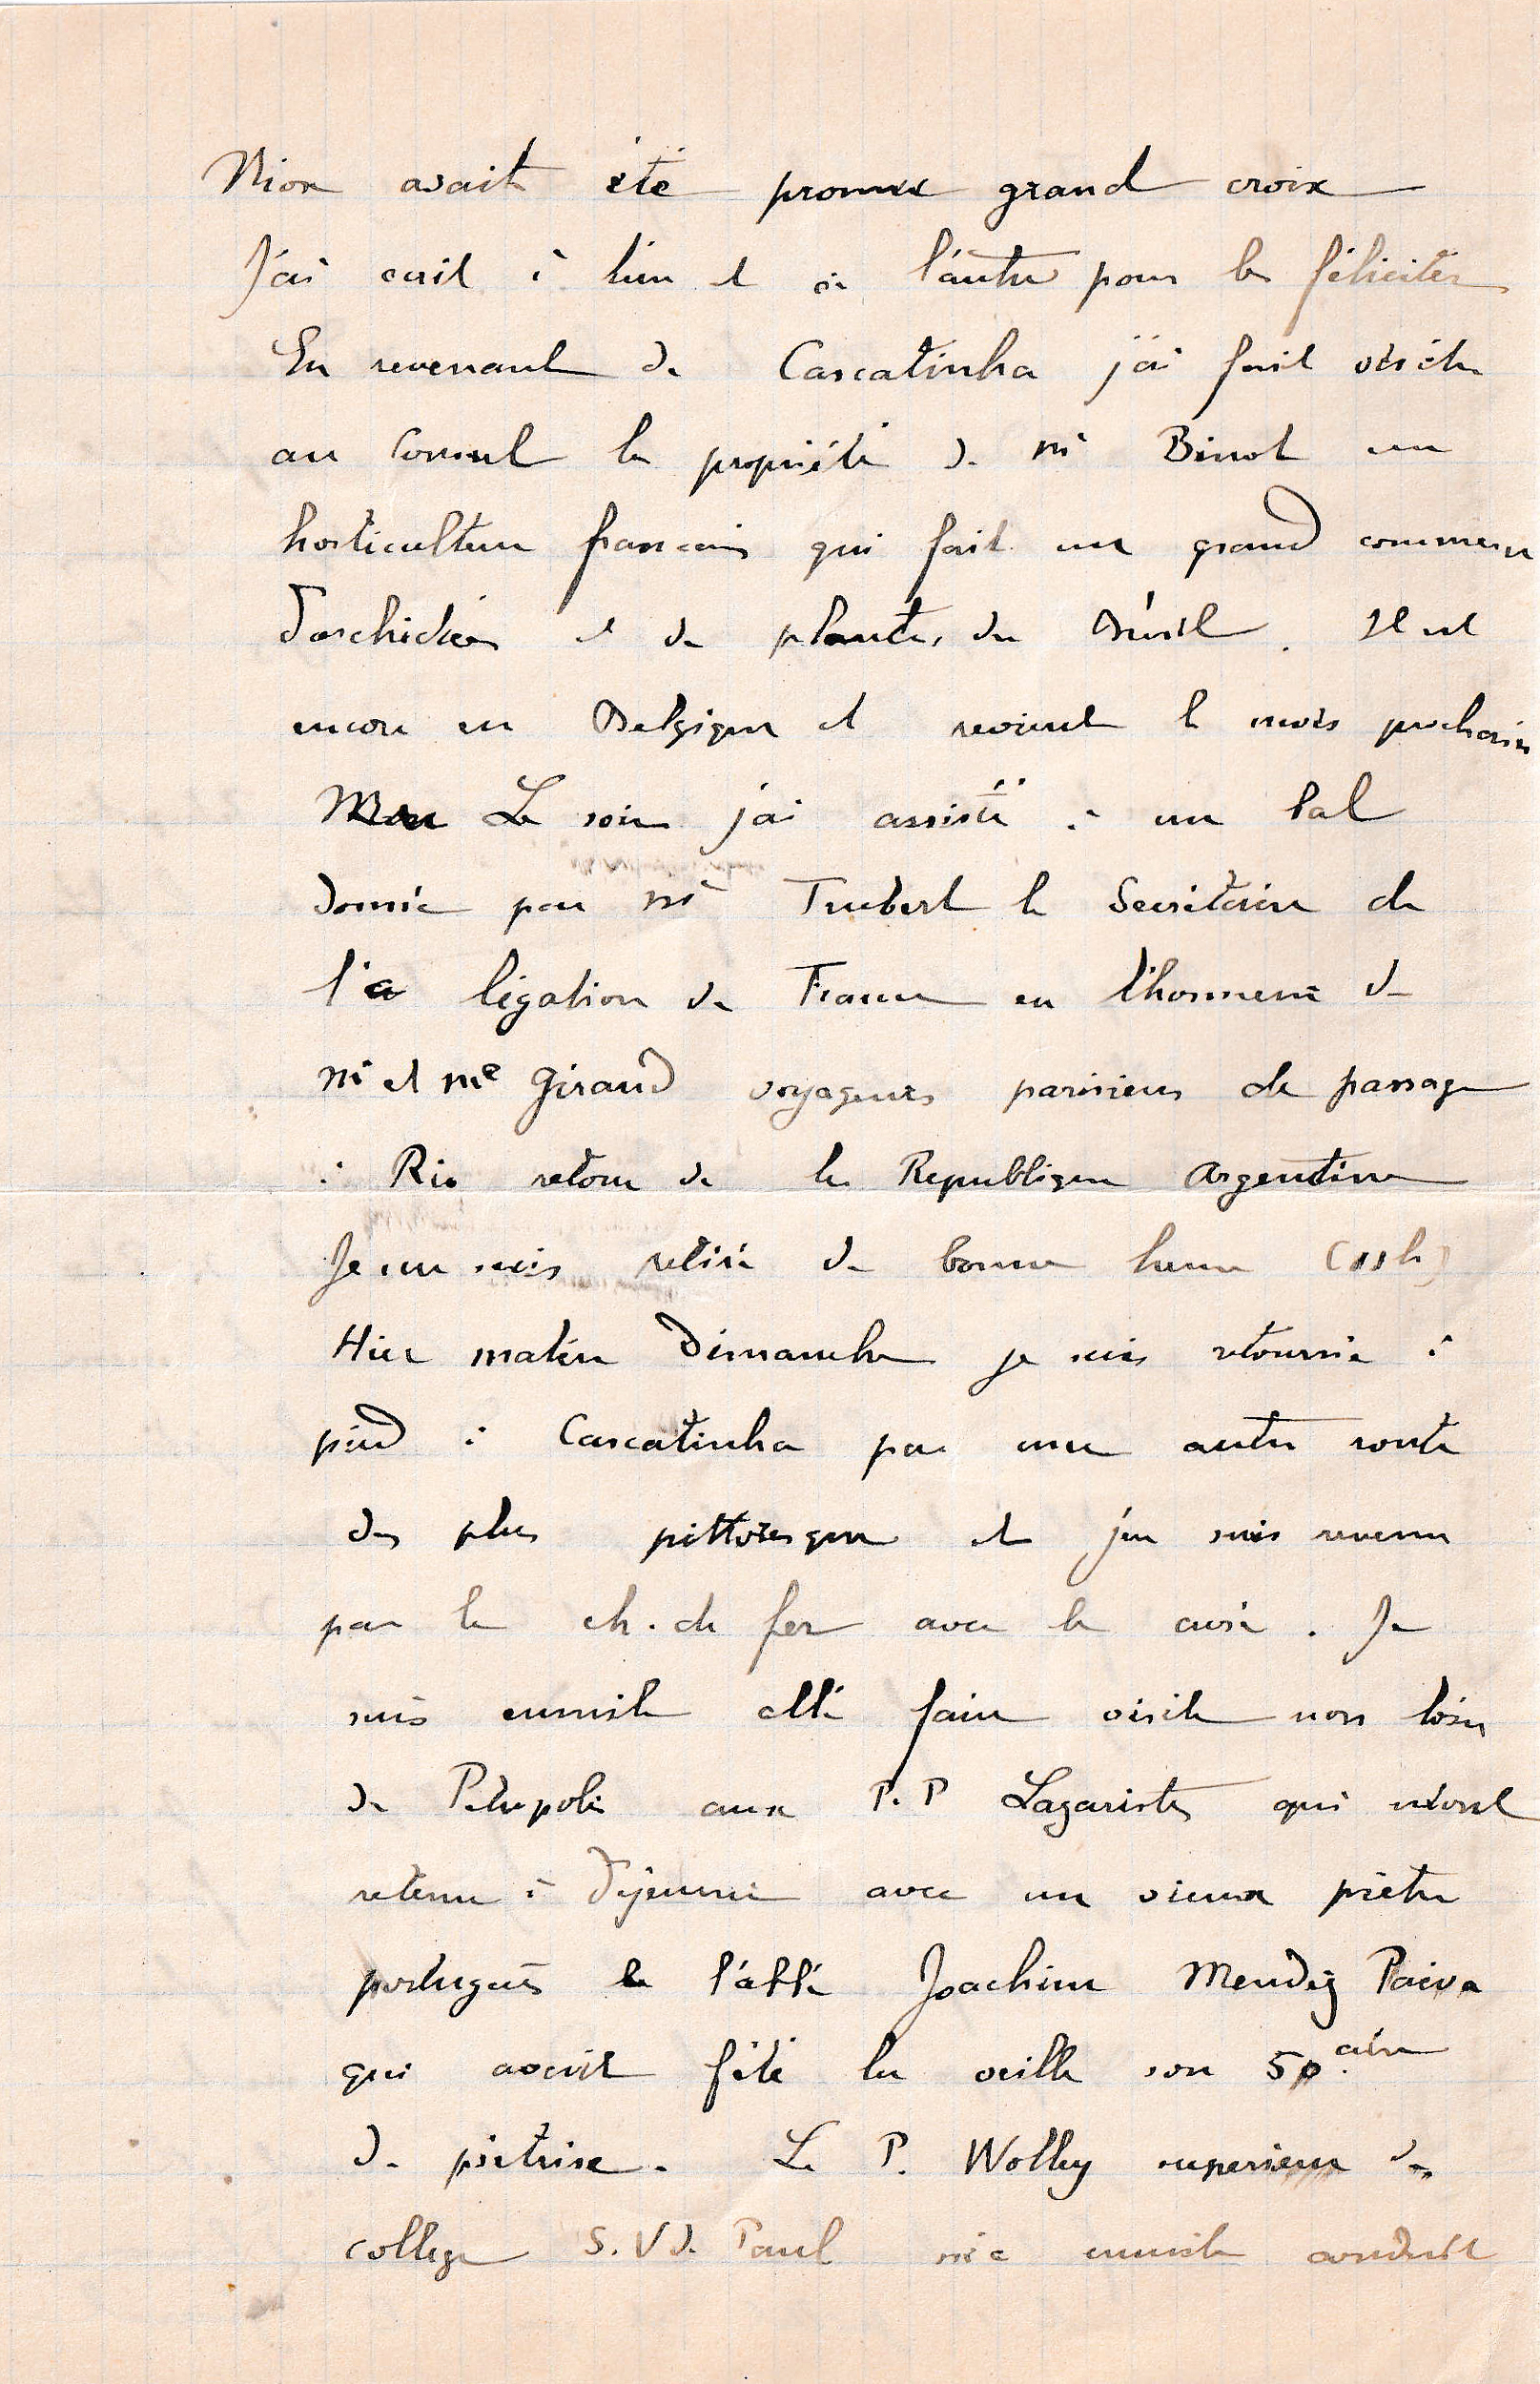 Nion avait été promu grand croix
J'ai écrit à l'un et à l'autre pour les féliciter
En revenant de Cascatinha j'ai fait visite
au Consul la propriété de Mr Binot un
horticulteur francais qui fait un grand commerce
d'orchidées et de plantes du Brésil. Il est
encore en Belgique et revient le mois prochain
Le soir j'ai assisté à un bal
donné par Mr Trubert le Secrétaire de
la légation de France en l'honneur de
Mr et Me Giraud voyageurs parisiens de passage
à Rio retour de la Republique Argentine
Je me suis retiré de bonne heure (11h)
Hier matin Dimanche je suis retourné à
pied à Cascatinha par une autre route
des plus pittoresque et j'en suis revenu
par le ch. de fer avec le curé. Je
suis ensuite allé faire visite non loin
de Petropolis aux P.P Lazaristes qui m'ont
retenu à déjeuner avec un vieux prêtre
portugais l'abbé Joachim Mendez Paiva
qui avait fêté la veille son 50aire
de prêtrise. Le P. Wolley superieur du
college S. V d. Paul m'a ensuite conduit